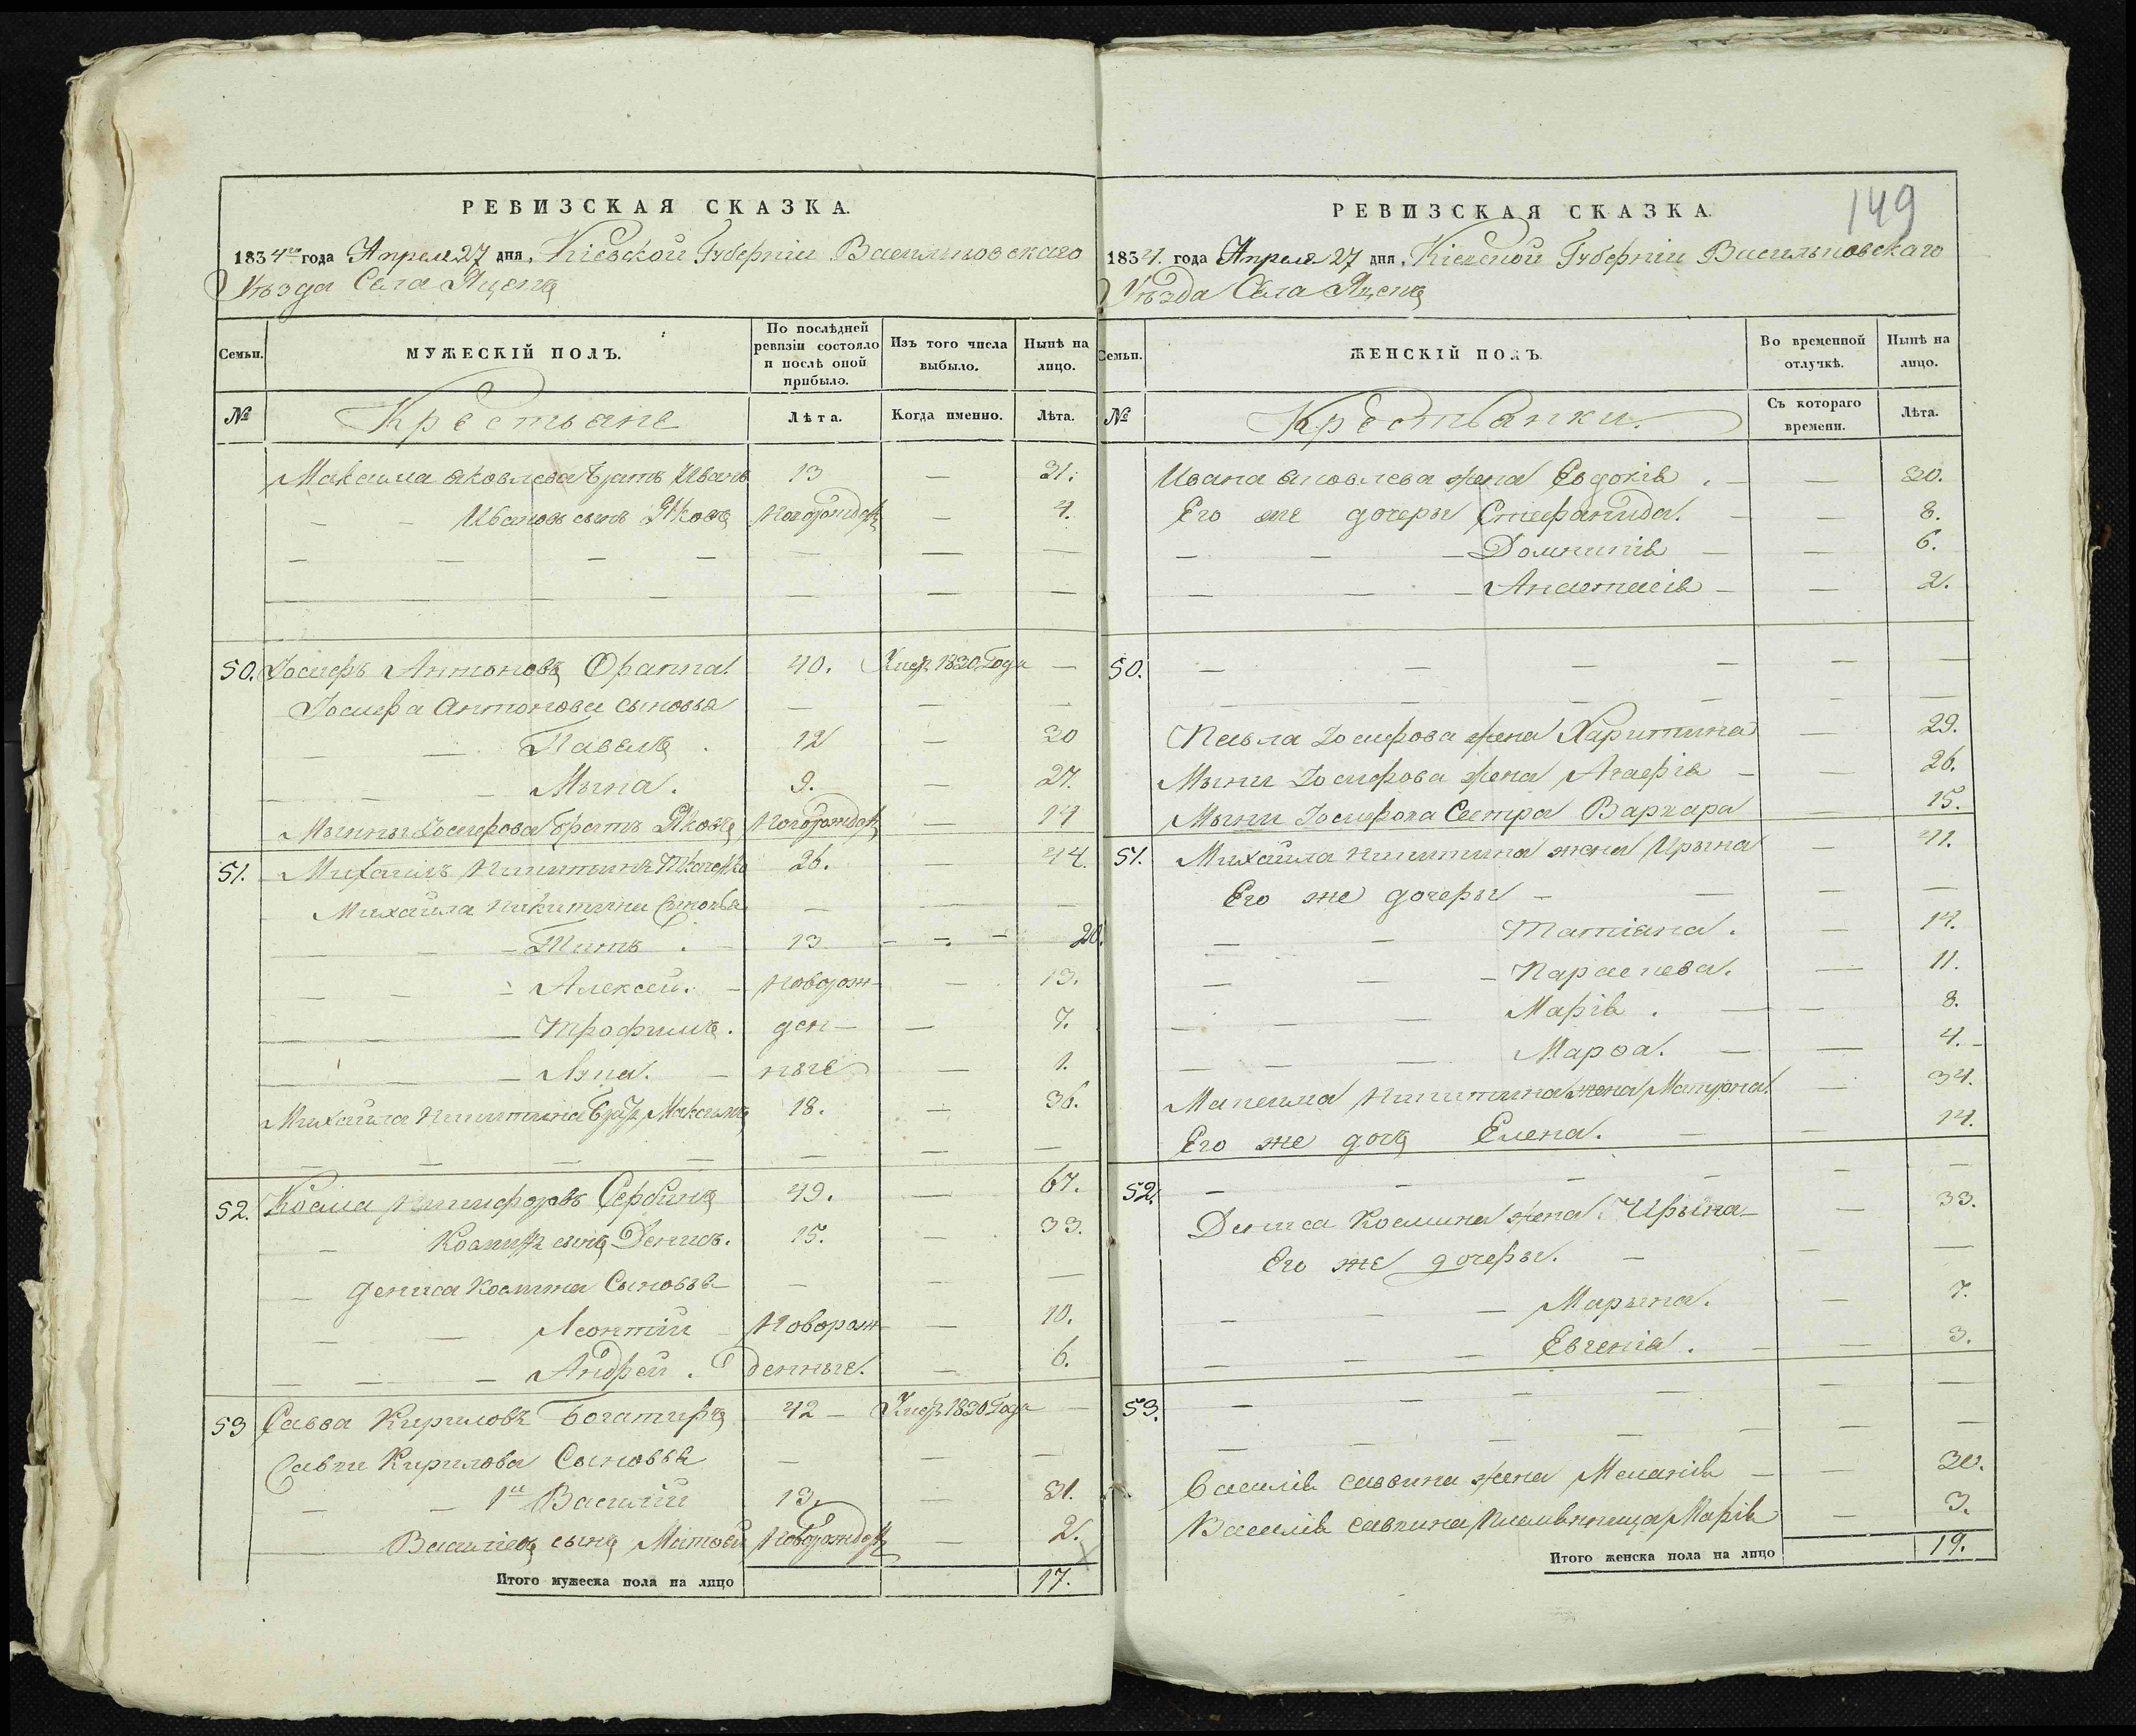 РЕВИЗСКАЯ СКАЗКА.
1834го года Апреля 27 дня, Кіевской Губерніи Васильковскаго
Уѣзда Села Яцекъ
Семьи. МУЖЕСКІЙ ПОЛЪ. По послѣдней ревизіи состояло и послѣ оной прибыло. Изъ того числа выбыло. Нынѣ на лицо.
№ Крестьяне Лѣта. Когда именно. Лѣта.
Максима Яковлева братъ Иванъ 13 — 31.
— — Ивановъ сынъ Яковъ — 4.
50. Іосифъ Антоновъ 40. 1830 Года —
Іосифа Антонова сыновья — — —
— Павелъ . 12 — 30
— Мына . 9. — 27.
Мыны Іосифова братъ Яковъ —
51. Михаилъ Никитинъ Ткаченко 26. — 44.
Михаила Никитина Сыновья — — —
— Титъ . 13 — 20.
— Алексей. — Новорож — 13.
— Трофимъ. ден — 7.
— Лука. — ные — 1.
Михаила Никитина братъ Максимъ 18. — 36.
52. Косма Никифоровъ Сербинъ 49. — 67.
— Косминъ сынъ Денисъ. 15. 33.
— Дениса Космина Сыновья — — —
— Леонтій Новорож — 10.
— Андрей . денные. — 6.
53 Савва Кириловъ Богатиръ 42 — 1830 Года —
Саввы Кирилова Сыновья — — —
— 1й Василій 13. — 31.
Василіевъ сынъ — 2.
Итого мужеска пола на лицо 17.
РЕВИЗСКАЯ СКАЗКА.
149
1834. года Апреля 27 дня, Кіевской Губерніи Васильковскаго
Уѣзда Села Яцекъ
Семьи. ЖЕНСКІЙ ПОЛЪ. Во временной отлучкѣ. Нынѣ на лицо.
№ Крестьянки. Съ котораго времени. Лѣта.
Ивана Яковлева жена Евдокія . — 30.
Его же дочеры Стефанида. — 8.
— Домникія — 6.
— Анастасія — 2.
50.
Павла Іосифова жена Харитина — 29.
Мыны Іосифова жена Агафія — 26.
Мыны Іосифова Сестра Варвара — 15.
51. Михаила Никитина жена Ирына — 41.
Его же дочеры —
— Татіана . — 17.
— Параскева. — 11.
— Марія . — 8.
— Марѳа. — 4.
Максима Никитина жена — 34.
Его же дочь Елена. — 14.
52.
Дениса Космина жена Ирына — 33.
Его же дочеры. —
— Марына. — 7.
— Евгенія . — 3.
53.
Василія Саввина жена Меланія — 30.
Василія Саввина племянница Марія — 3.
Итого женска пола на лицо 19.